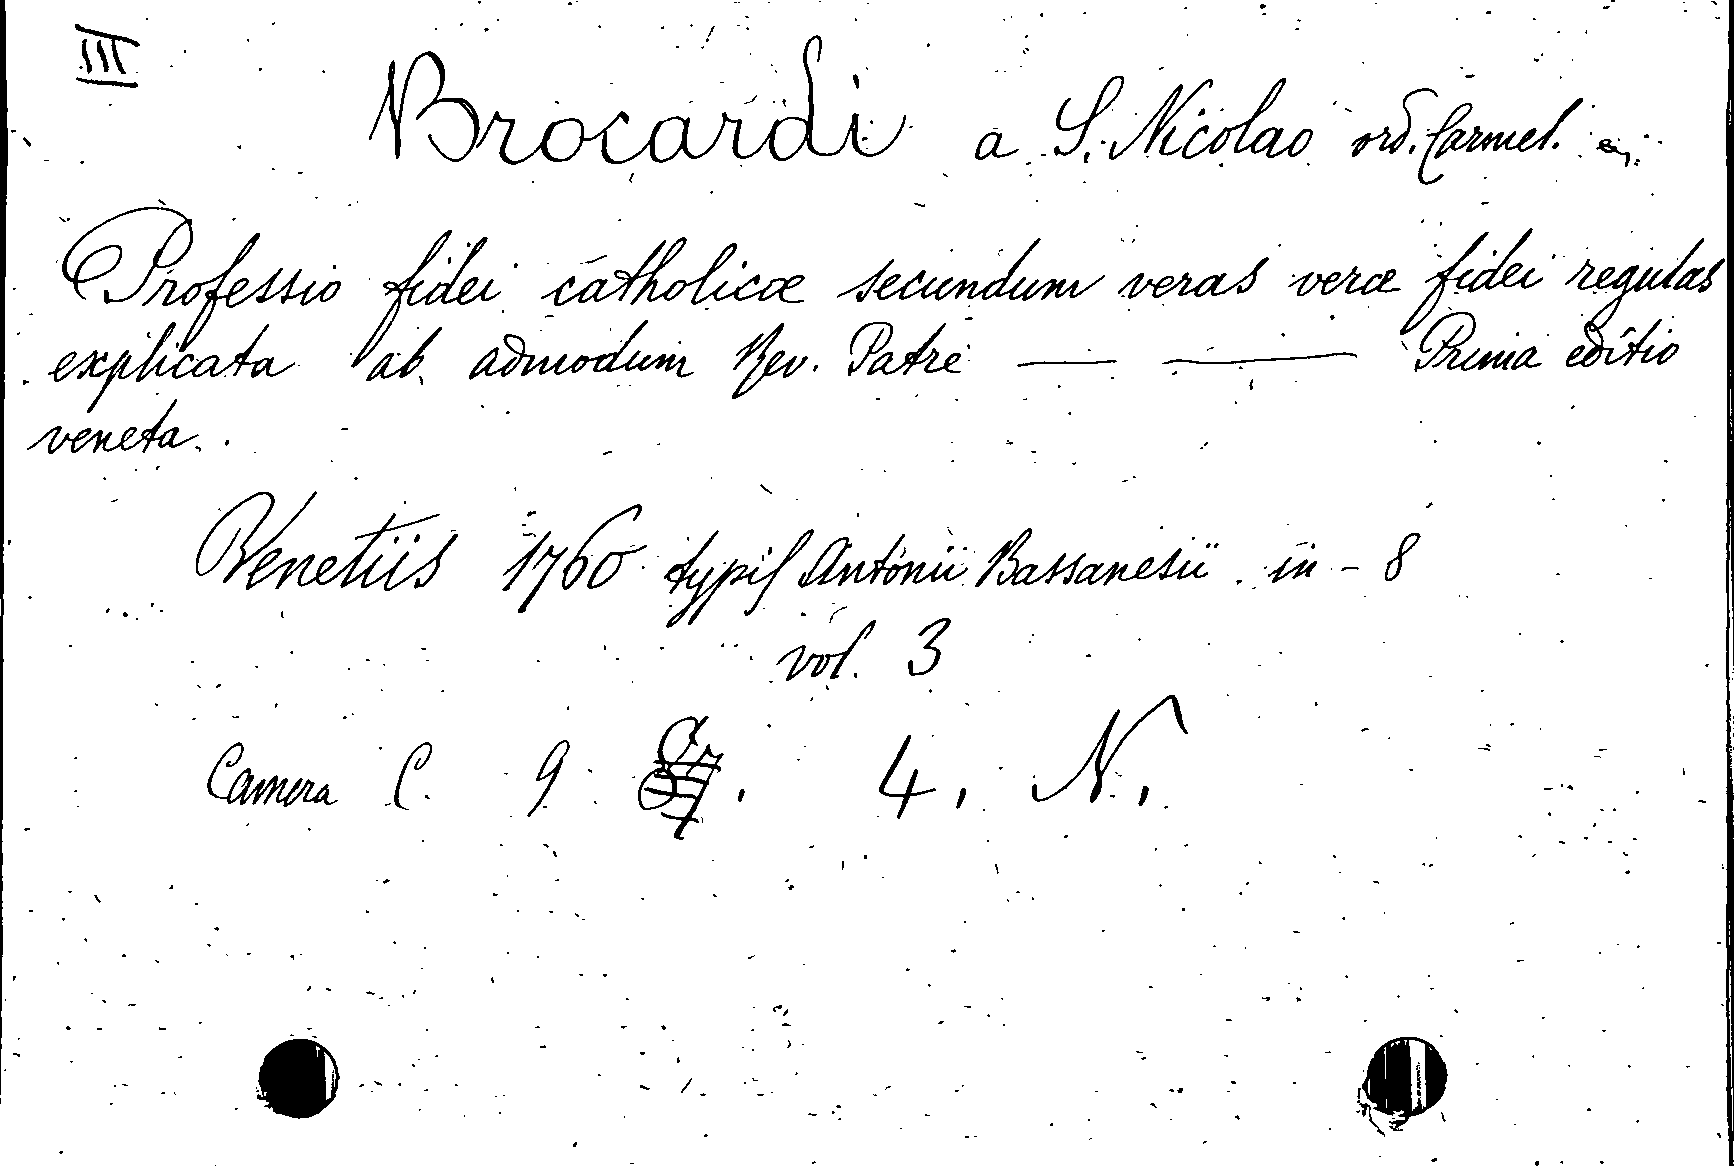 III
Brocardi a S. Nicolao ord. Carmel.
Professio fidei catholicæ secundum veras veræ fidei regulas
explicata ab admodum Rev. Patre — — Prima editio
veneta.
Venetiis 1760 typis Antonii Bassanesii in - 8
vol. 3
Camera C. 9. 4, N.